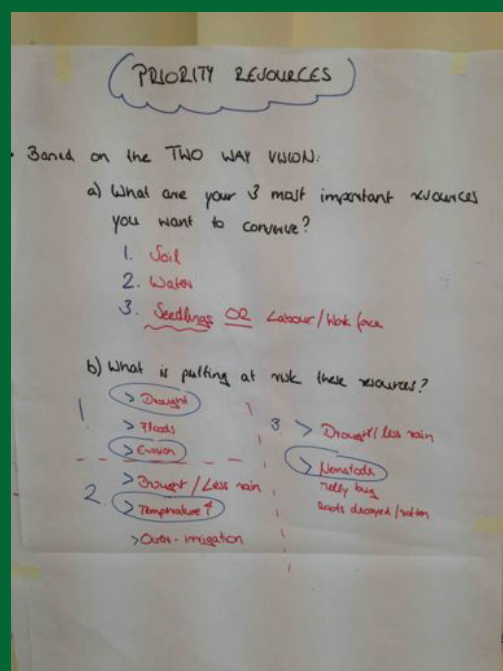 PRIORITY RESOURCES
• Based on the TWO WAY VISION:
a) What are your 3 most important resources
you want to conserve?
1. Soil
2. Water
3. Seedlings OR Labour/Work force
b) What is putting at risk these resources?
1.
> Drought
> Floods
> Erosion
2.
> Drought / Less rain
> Temperature ↑
> Over-irrigation
3.
> Drought/less rain
> Nematods
Melly bug
Roots decayed/rotten